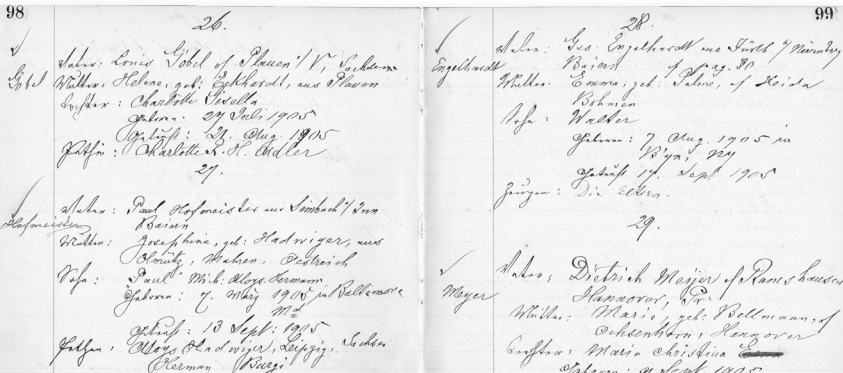 98
26.
Göbel
Vater: Louis Göbel of Plauen i/V, Sachsen
Mutter: Helene, geb: Eckhardt, aus Plauen
Tochter: Charlotte Gisella
Geboren: 27 Juli 1905
Getauft: 21. Aug. 1905
Pathin: Charlotte R. H. Adler
27.
Hofmeister
Vater: Paul Hofmeister aus Simbach i/Inn
Baiern
Mutter: Josephine, geb: Hadwiger, aus
Olmütz, Mähren, Oestreich
Sohn: Paul Mich: Aloys. Hermann
Geboren: 7. März 1905 in Baltimore
Md
Getauft: 13 Sept: 1905
Pathen: Aloys Hadwiger, Leipzig, Sachsen
Herman Burgi
99
28.
Engelhardt
Vater: Geo. Engelhardt aus Fürth b/Nürnberg
Baiern of pag. 80
Mutter: Emma, geb: Palme, of Heida
Böhmen
Sohn: Walter
Geboren: 7 Aug. 1905 in
B'yn, NY
Getauft 17. Sept 1905
Zeugen: Die Eltern.
29.
Meyer
Vater: Dietrich Meyer of Ramshausen
Hannover, Pr.
Mutter: Marie, geb: Bellmann, of
Ochsenhorn, Hannover
Tochter: Maria Christina
Geboren: Sept 1905